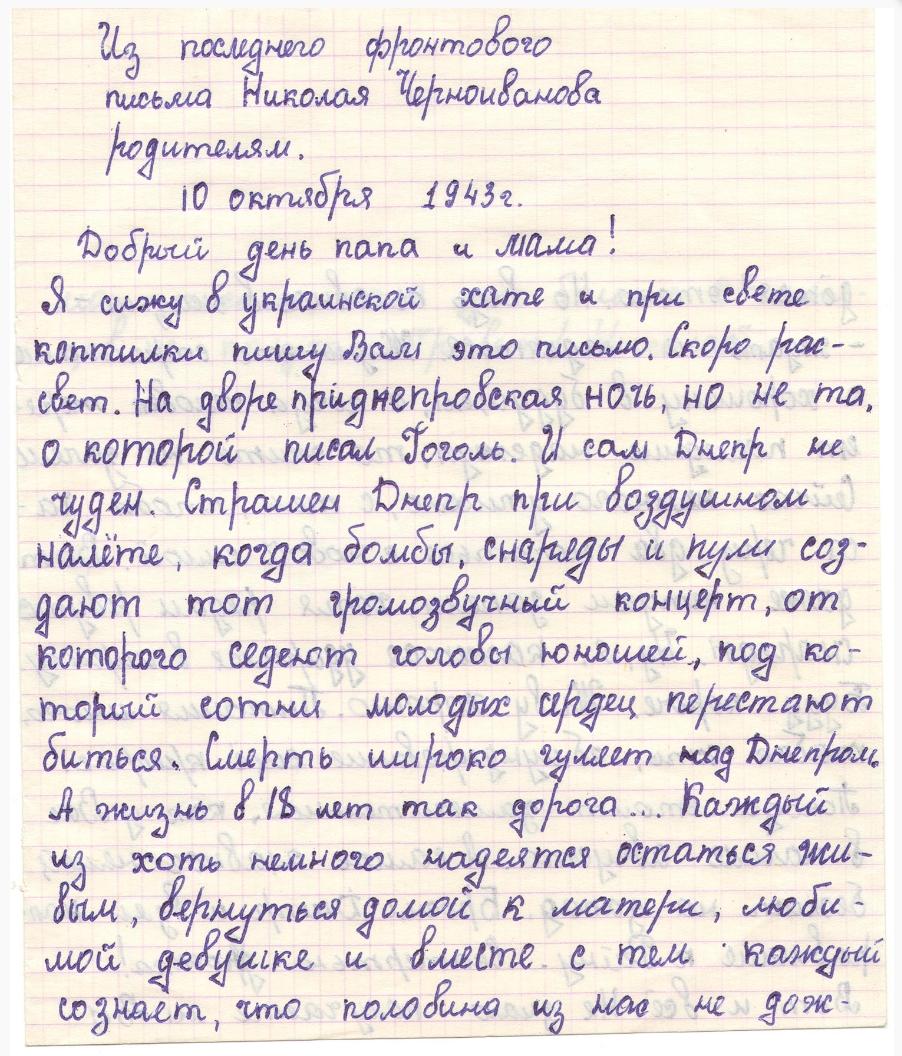 Из последнего фронтового
письма Николая Черноиванова
родителям.
10 октября 1943г.
Добрый день папа и мама!
Я сижу в украинской хате и при свете
коптилки пишу Вам это письмо. Скоро рас-
свет. На дворе приднепровская ночь, но не та,
о которой писал Гоголь. И сам Днепр не
чуден. Страшен Днепр при воздушном
налёте, когда бомбы, снаряды и пули соз-
дают тот громозвучный концерт, от
которого седеют головы юношей, под ко-
торый сотни молодых сердец перестают
биться. Смерть широко гуляет над Днепром.
А жизнь в 18 лет так дорога... Каждый
из хоть немного надеятся остаться жи-
вым, вернуться домой к матери, люби-
мой девушке и вместе с тем каждый
сознает, что половина из нас не дож-